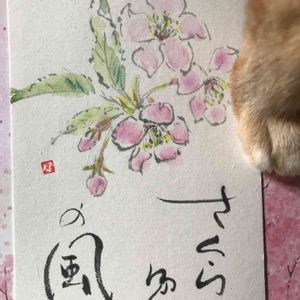 さくら
の風